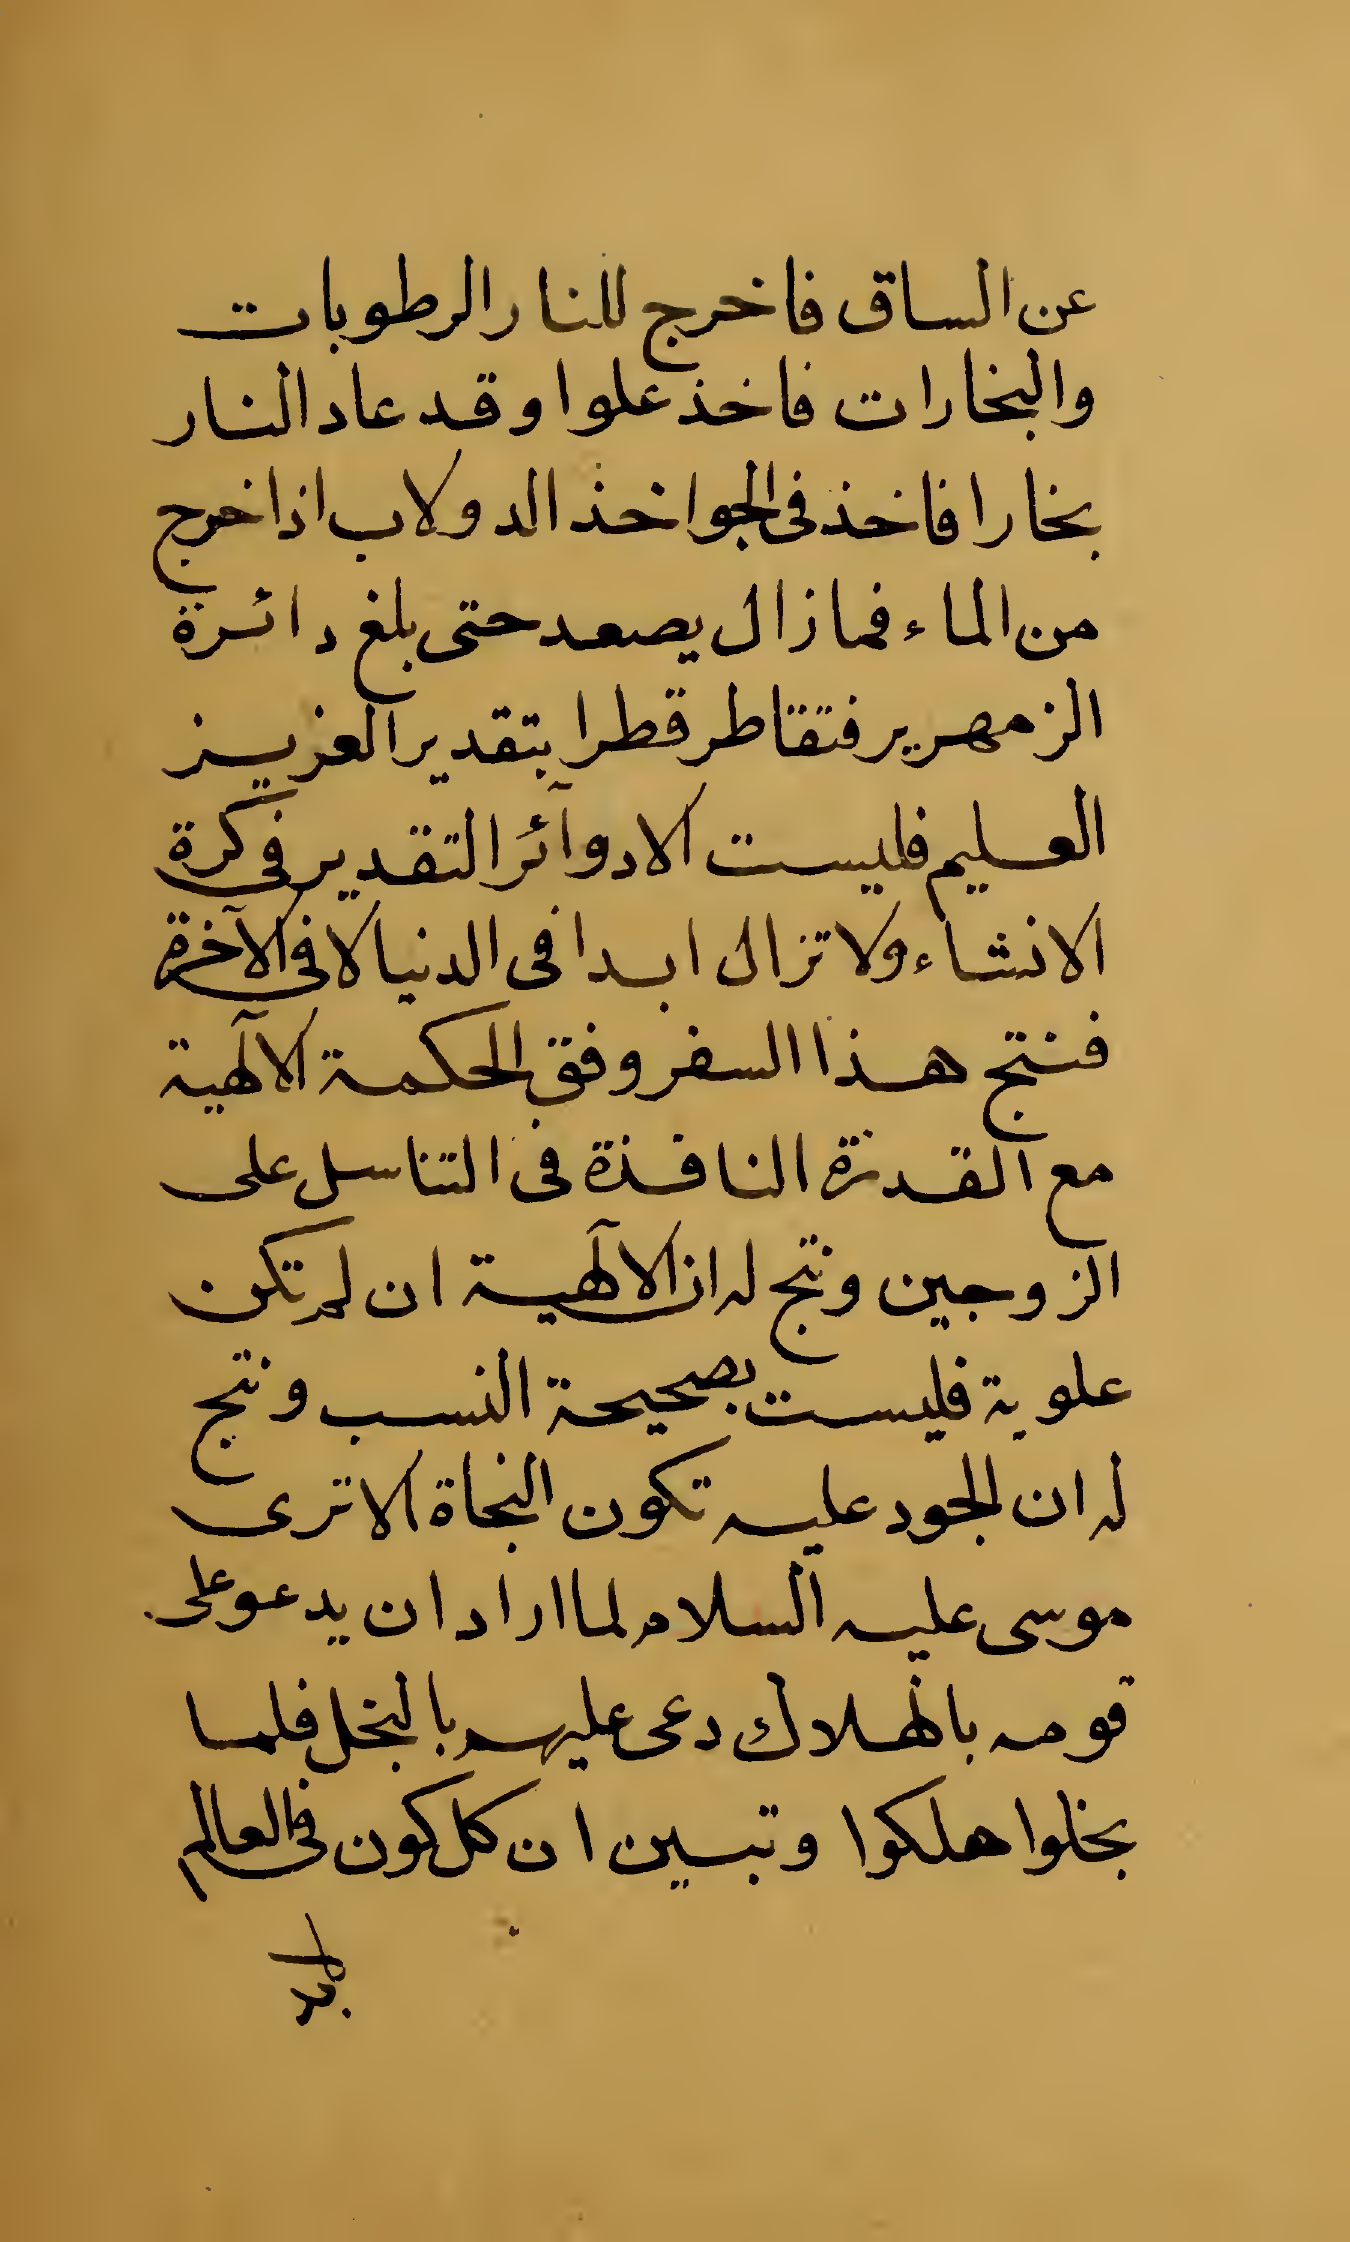 عن الساق فاخرج للنار الرطوبات
والبخارات فاخذ علوا وقد عاد النار
بخارا فاخذ فى الجو اخذ الدولاب اذا خرج
من الماء فما زال يصعد حتى بلغ دائرة
الزمهرير فتقاطر قطرا بتقدير العزيز
العليم فليست الا دوآئر التقدير فى كرة
الانشاء ولا تزال ابدا فى الدنيا لا فى الآخرة
فنتج هذا السفر وفق الحكمة الالٓهية
مع القدرة النافذة فى التناسل على
الزوجين ونتج له ان الالٓهية ان لم تكن
علوية فليست بصحيحة النسب ونتج
له ان الجود عليه تكون النجاة الا ترى
موسى عليه السلام لما اراد ان يدعو على
قومه بالهلاك دعى عليهم بالبخل فلما
بخلوا هلكوا وتبين ان كل كون فى العالم